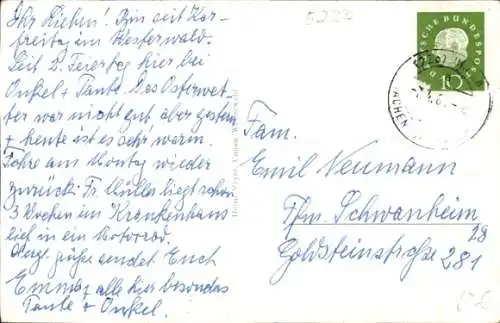 Ihr Lieben! Bin seit Kar-
freitag im Westerwald.
Seit 2. Feiertag hier bei
Onkel + Tante. Das Osterwet-
ter war nicht gut aber gestern
+ heute ist es sehr warm.
Fahre am Montag wieder
zurück. Fr. Müller liegt schon
3 Wochen im Krankenhaus
lief in ein Motorrad.
Herzl. Grüße sendet Euch
Emmy alle hier besonders
Tante + Onkel.
DEUTSCHE BUNDESPOST
10
Fam.
Emil Neumann
Ffm. Schwanheim
28
Goldsteinstraße 281